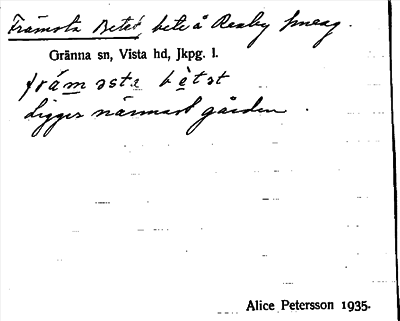 Främsta Betet bete å Reaby smeag.
Gränna sn, Vista hd, Jkpg. l.
frám̲əsta bètət
Ligger närmast gården.
Alice Petersson 1935.